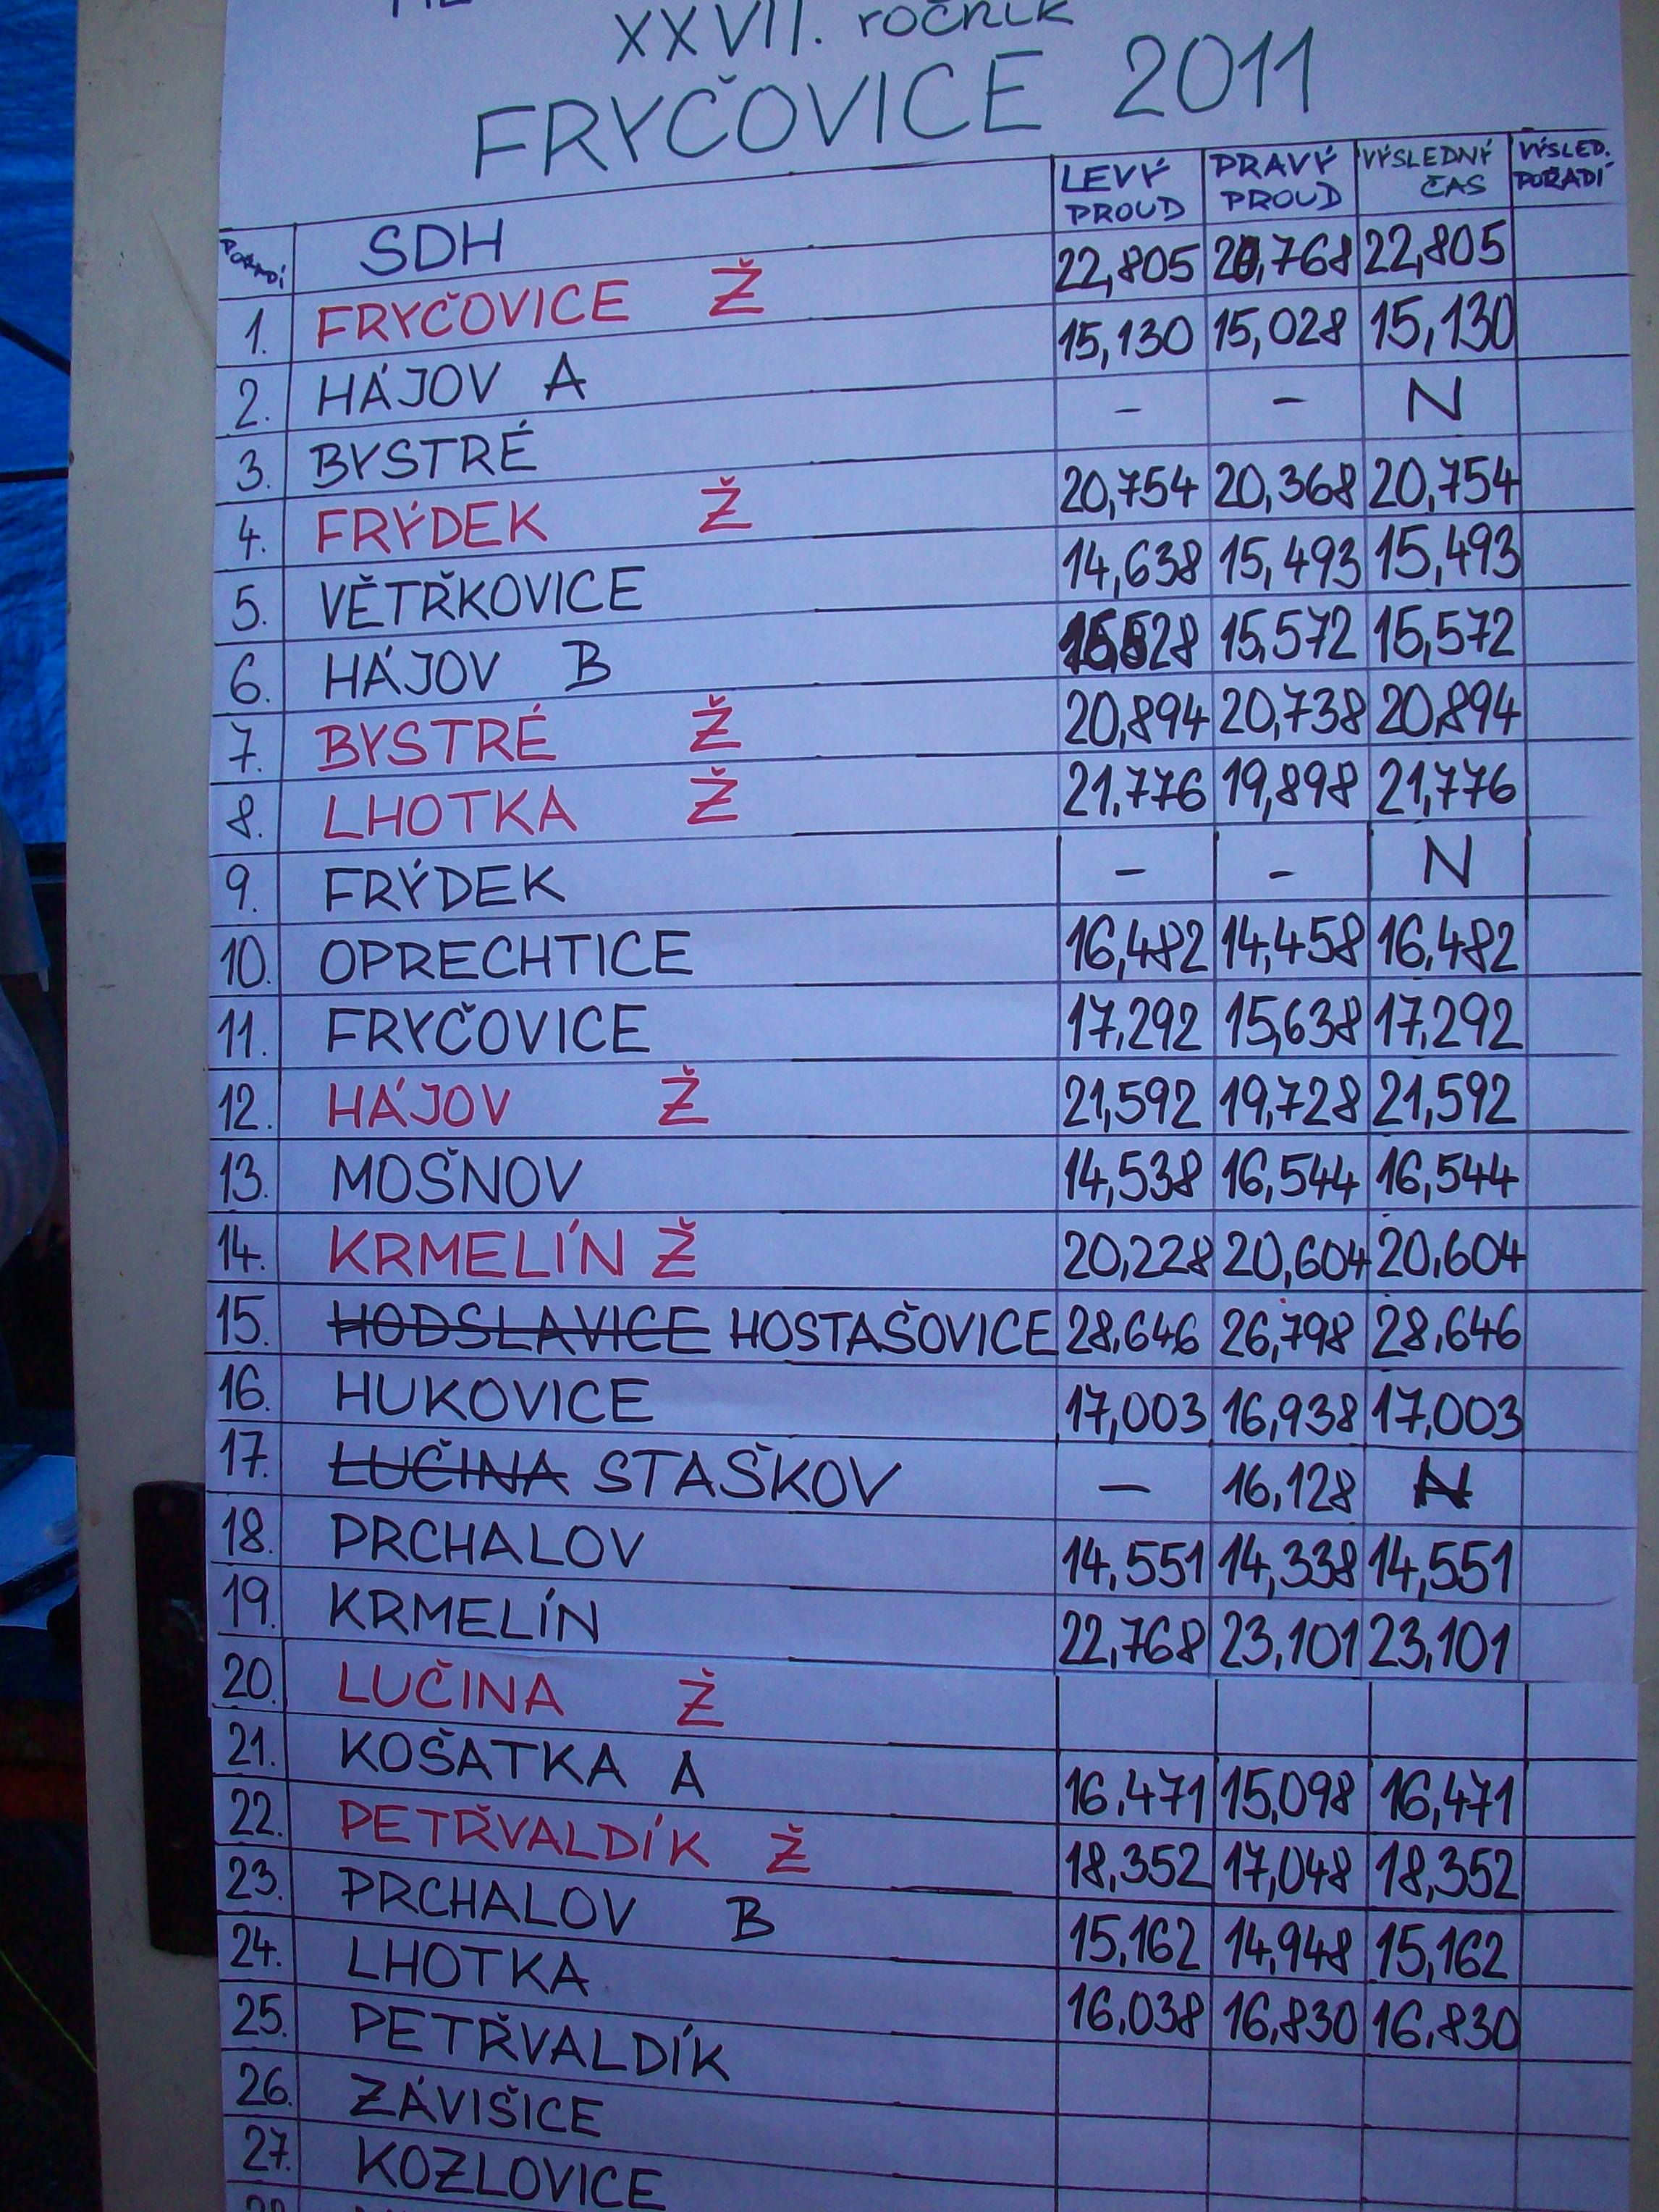 XXVII. ročník
FRYČOVICE 2011
POŘADÍ SDH LEVÝ PROUD PRAVÝ PROUD VÝSLEDNÝ ČAS VÝSLED. POŘADÍ
1. FRYČOVICE Ž 22,805 20,768 22,805
2. HÁJOV A 15,130 15,028 15,130
3. BYSTRÉ - - N
4. FRÝDEK Ž 20,754 20,368 20,754
5. VĚTŘKOVICE 14,638 15,493 15,493
6. HÁJOV B 15,528 15,572 15,572
7. BYSTRÉ Ž 20,894 20,738 20,894
8. LHOTKA Ž 21,776 19,898 21,776
9. FRÝDEK - - N
10. OPRECHTICE 16,482 14,458 16,482
11. FRYČOVICE 17,292 15,638 17,292
12. HÁJOV Ž 21,592 19,728 21,592
13. MOŠNOV 14,538 16,544 16,544
14. KRMELÍN Ž 20,228 20,604 20,604
15. HODSLAVICE HOSTAŠOVICE 28,646 26,798 28,646
16. HUKOVICE 17,003 16,938 17,003
17. LUČINA STAŠKOV — 16,128 N
18. PRCHALOV 14,551 14,338 14,551
19. KRMELÍN 22,768 23,101 23,101
20. LUČINA Ž
21. KOŠATKA A 16,471 15,098 16,471
22. PETŘVALDÍK Ž 18,352 17,048 18,352
23. PRCHALOV B 15,162 14,948 15,162
24. LHOTKA 16,038 16,830 16,830
25. PETŘVALDÍK
26. ZÁVIŠICE
27. KOZLOVICE